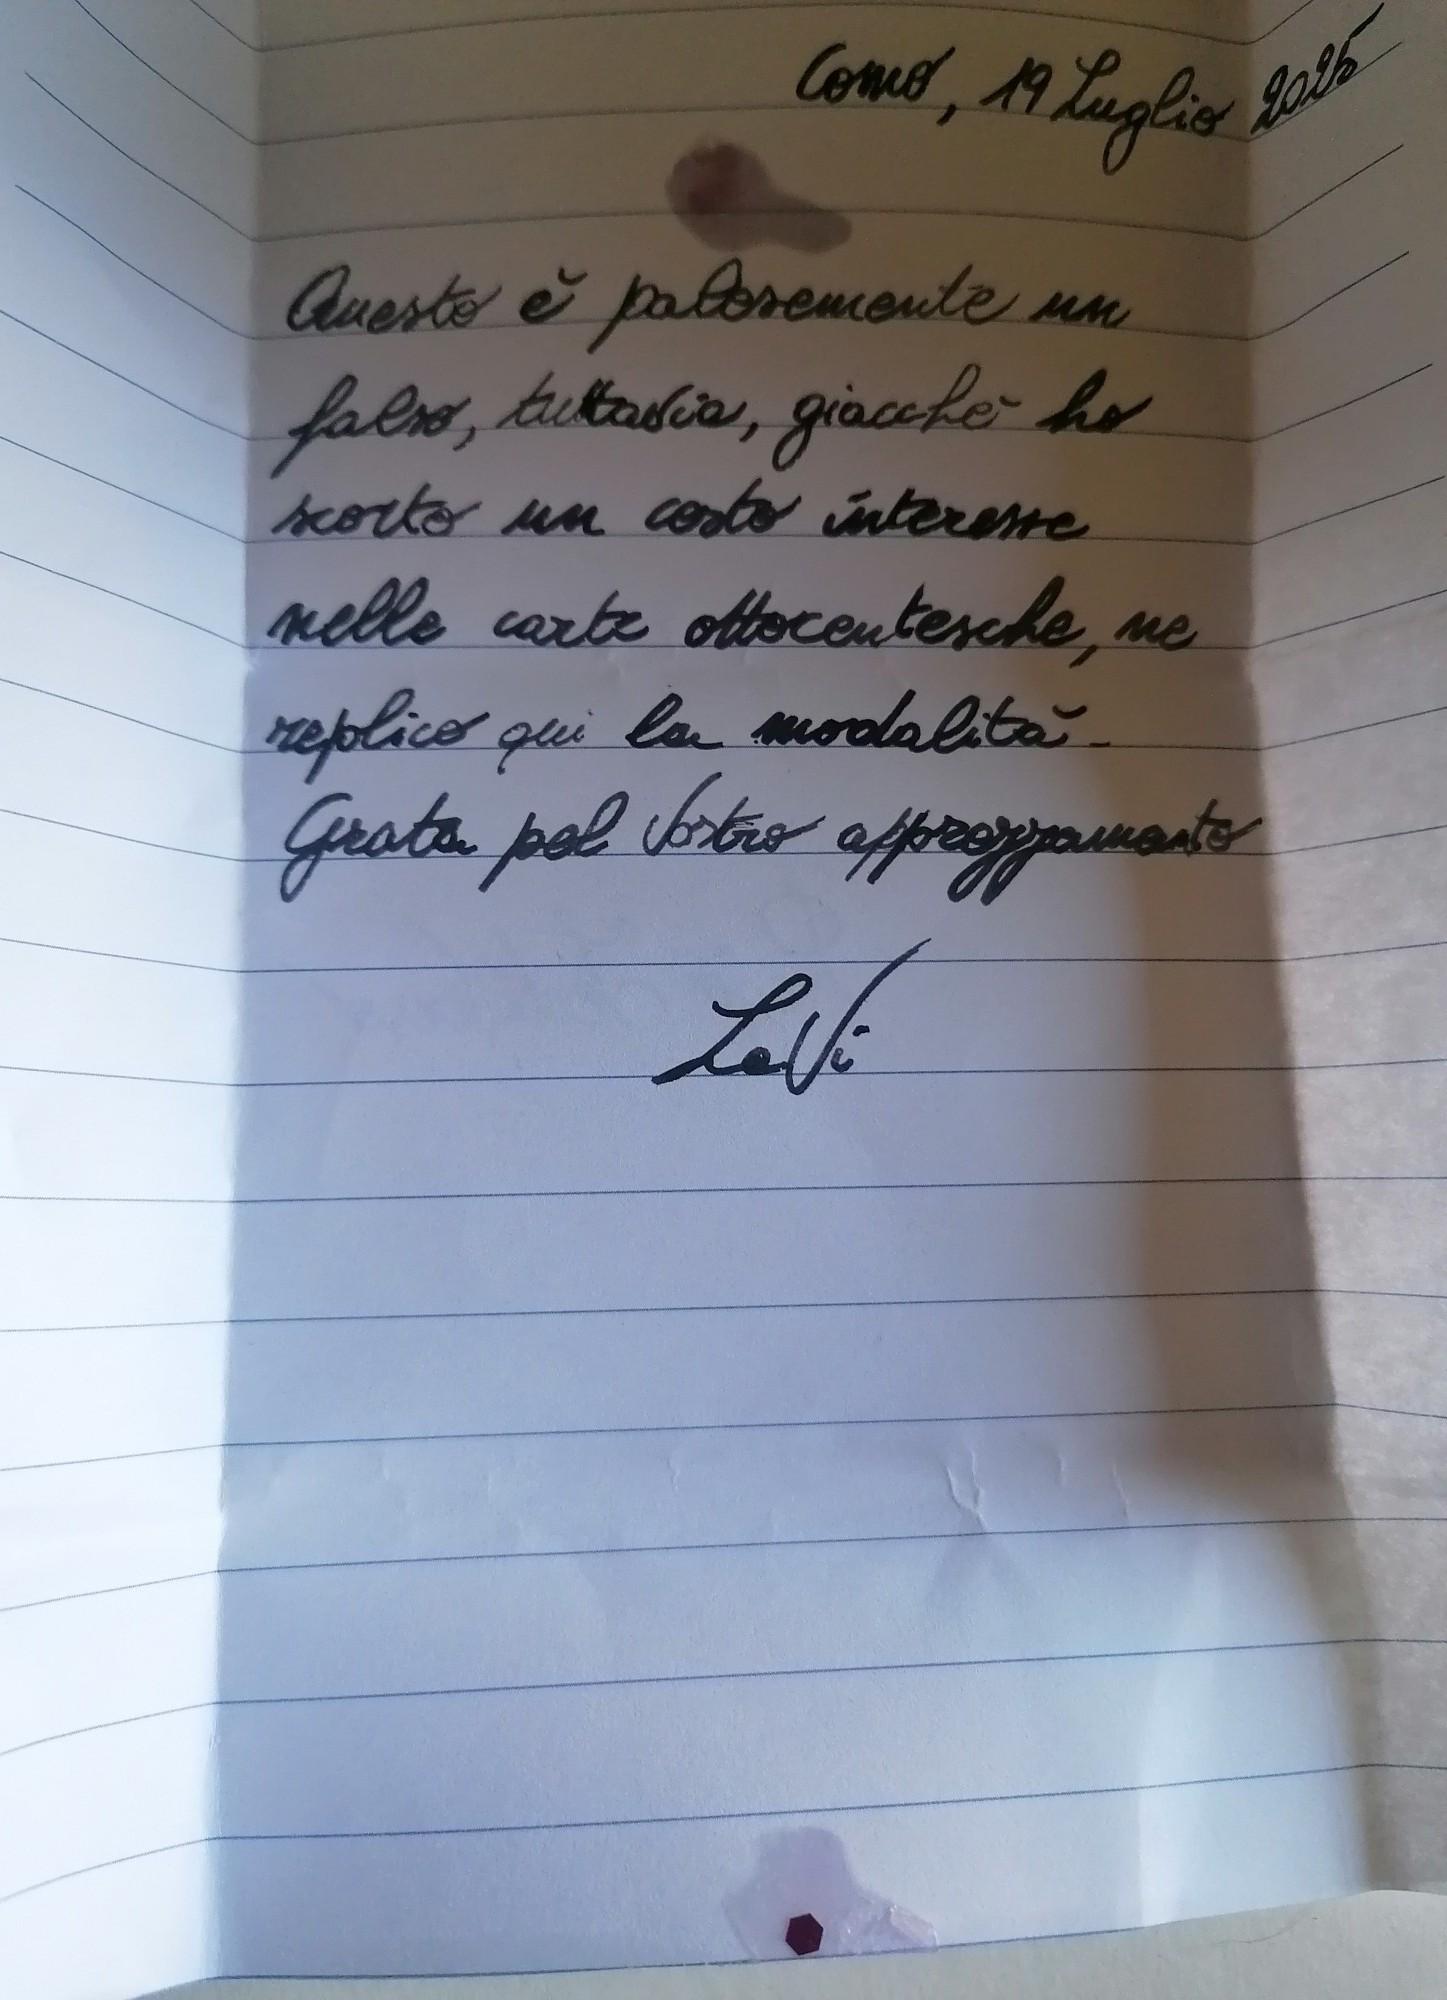 Como, 19 Luglio 2025
Questo è palesemente un
falso, tuttavia, giacché ho
scorto un costo interesse
nelle carte ottocentesche, ne
replico qui la modalità.
Grata pel Vostro apprezzamento
LaVi